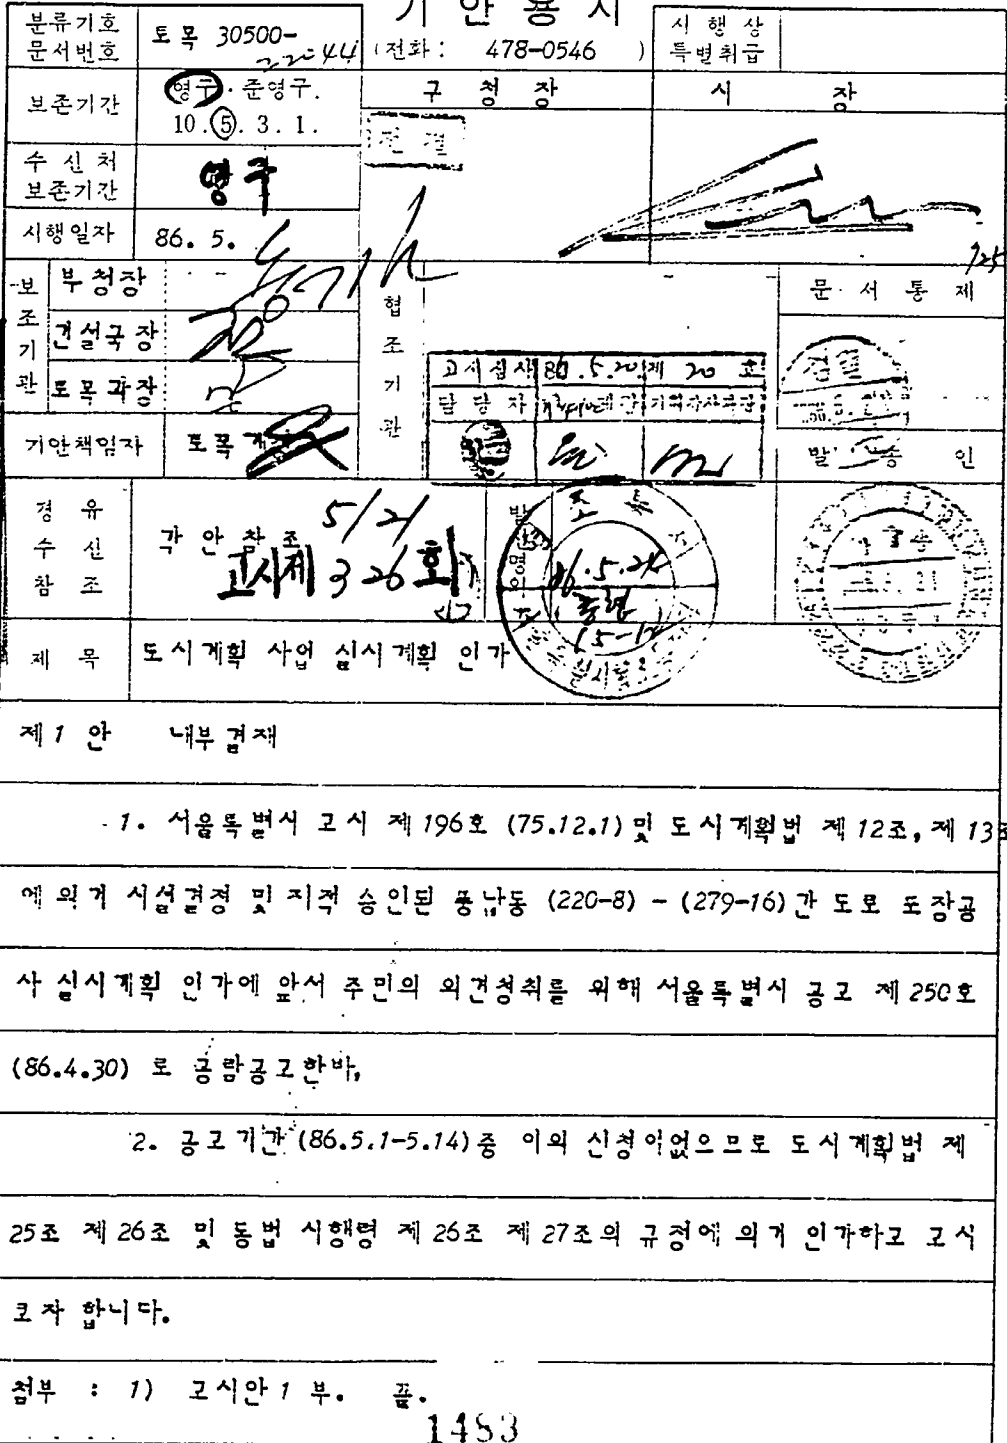 기 안 용 지
분류기호
문서번호
토목 30500-
22044
(전화 : 478-0546 )
시 행 상
특별취급
보존기간
영구 · 준영구.
10 . 5 . 3 . 1 .
구 청 장
시 장
전 결
수 신 처
보존기간
영구
시행일자
86. 5.
보 조 기 관
부청장
건설국장
토목과장
기안책임자
토목
협 조 기 관
문 서 통 제
고시심사 86.5.20 제 20 호
담 당 자
검열
발 송 인
경 유
수 신
참 조
각 안 참 조
5/21
고시제 326 호
86.5.24
제 목
도시계획 사업 실시계획 인가
제 1 안 내부결재
1. 서울특별시 고시 제 196호 (75.12.1) 및 도시계획법 제 12조, 제 13조
에 의거 시설결정 및 지적 승인된 풍납동 (220-8) - (279-16)간 도로 포장공
사 실시계획 인가에 앞서 주민의 의견청취를 위해 서울특별시 공고 제 250호
(86.4.30) 로 공람공고한바,
2. 공고기간 (86.5.1-5.14)중 이의 신청이없으므로 도시계획법 제
25조 제 26조 및 동법 시행령 제 26조 제 27조의 규정에 의거 인가하고 고시
코자 합니다.
첨부 : 1) 고시안 1 부. 끝.
1483